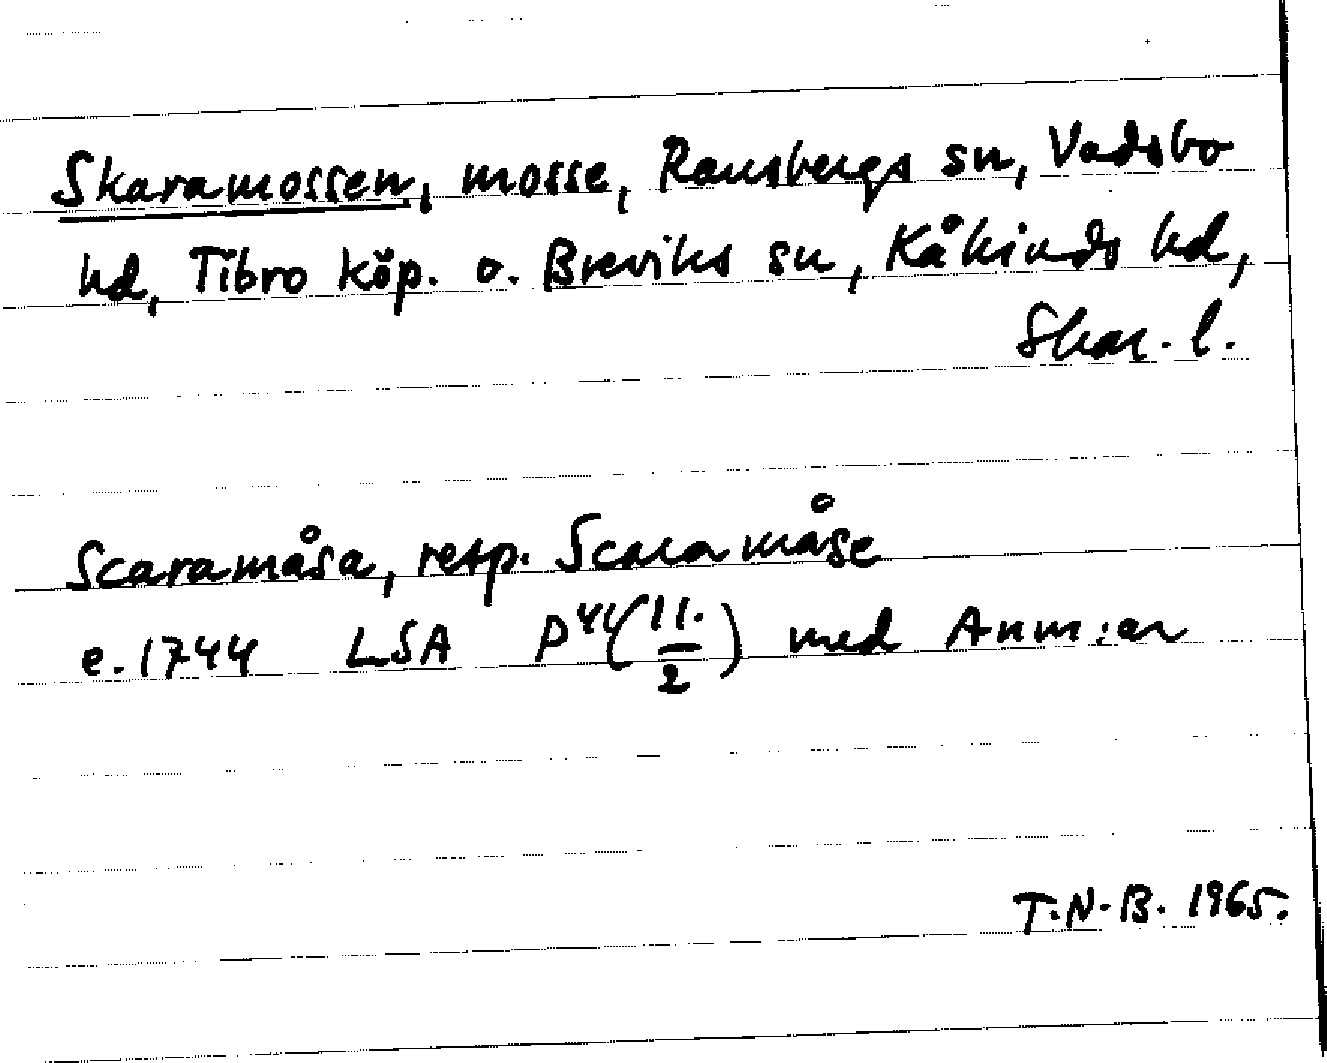 Skaramossen, mosse, Ransbergs sn, Vadsbo
hd, Tibro köp. o. Breviks sn, Kåkinds hd,
Skar. l.
Scaramåsa, resp. Scaramåse
e. 1744 LSA P 41(11./2) med Anm:ar
T.N-B. 1965.